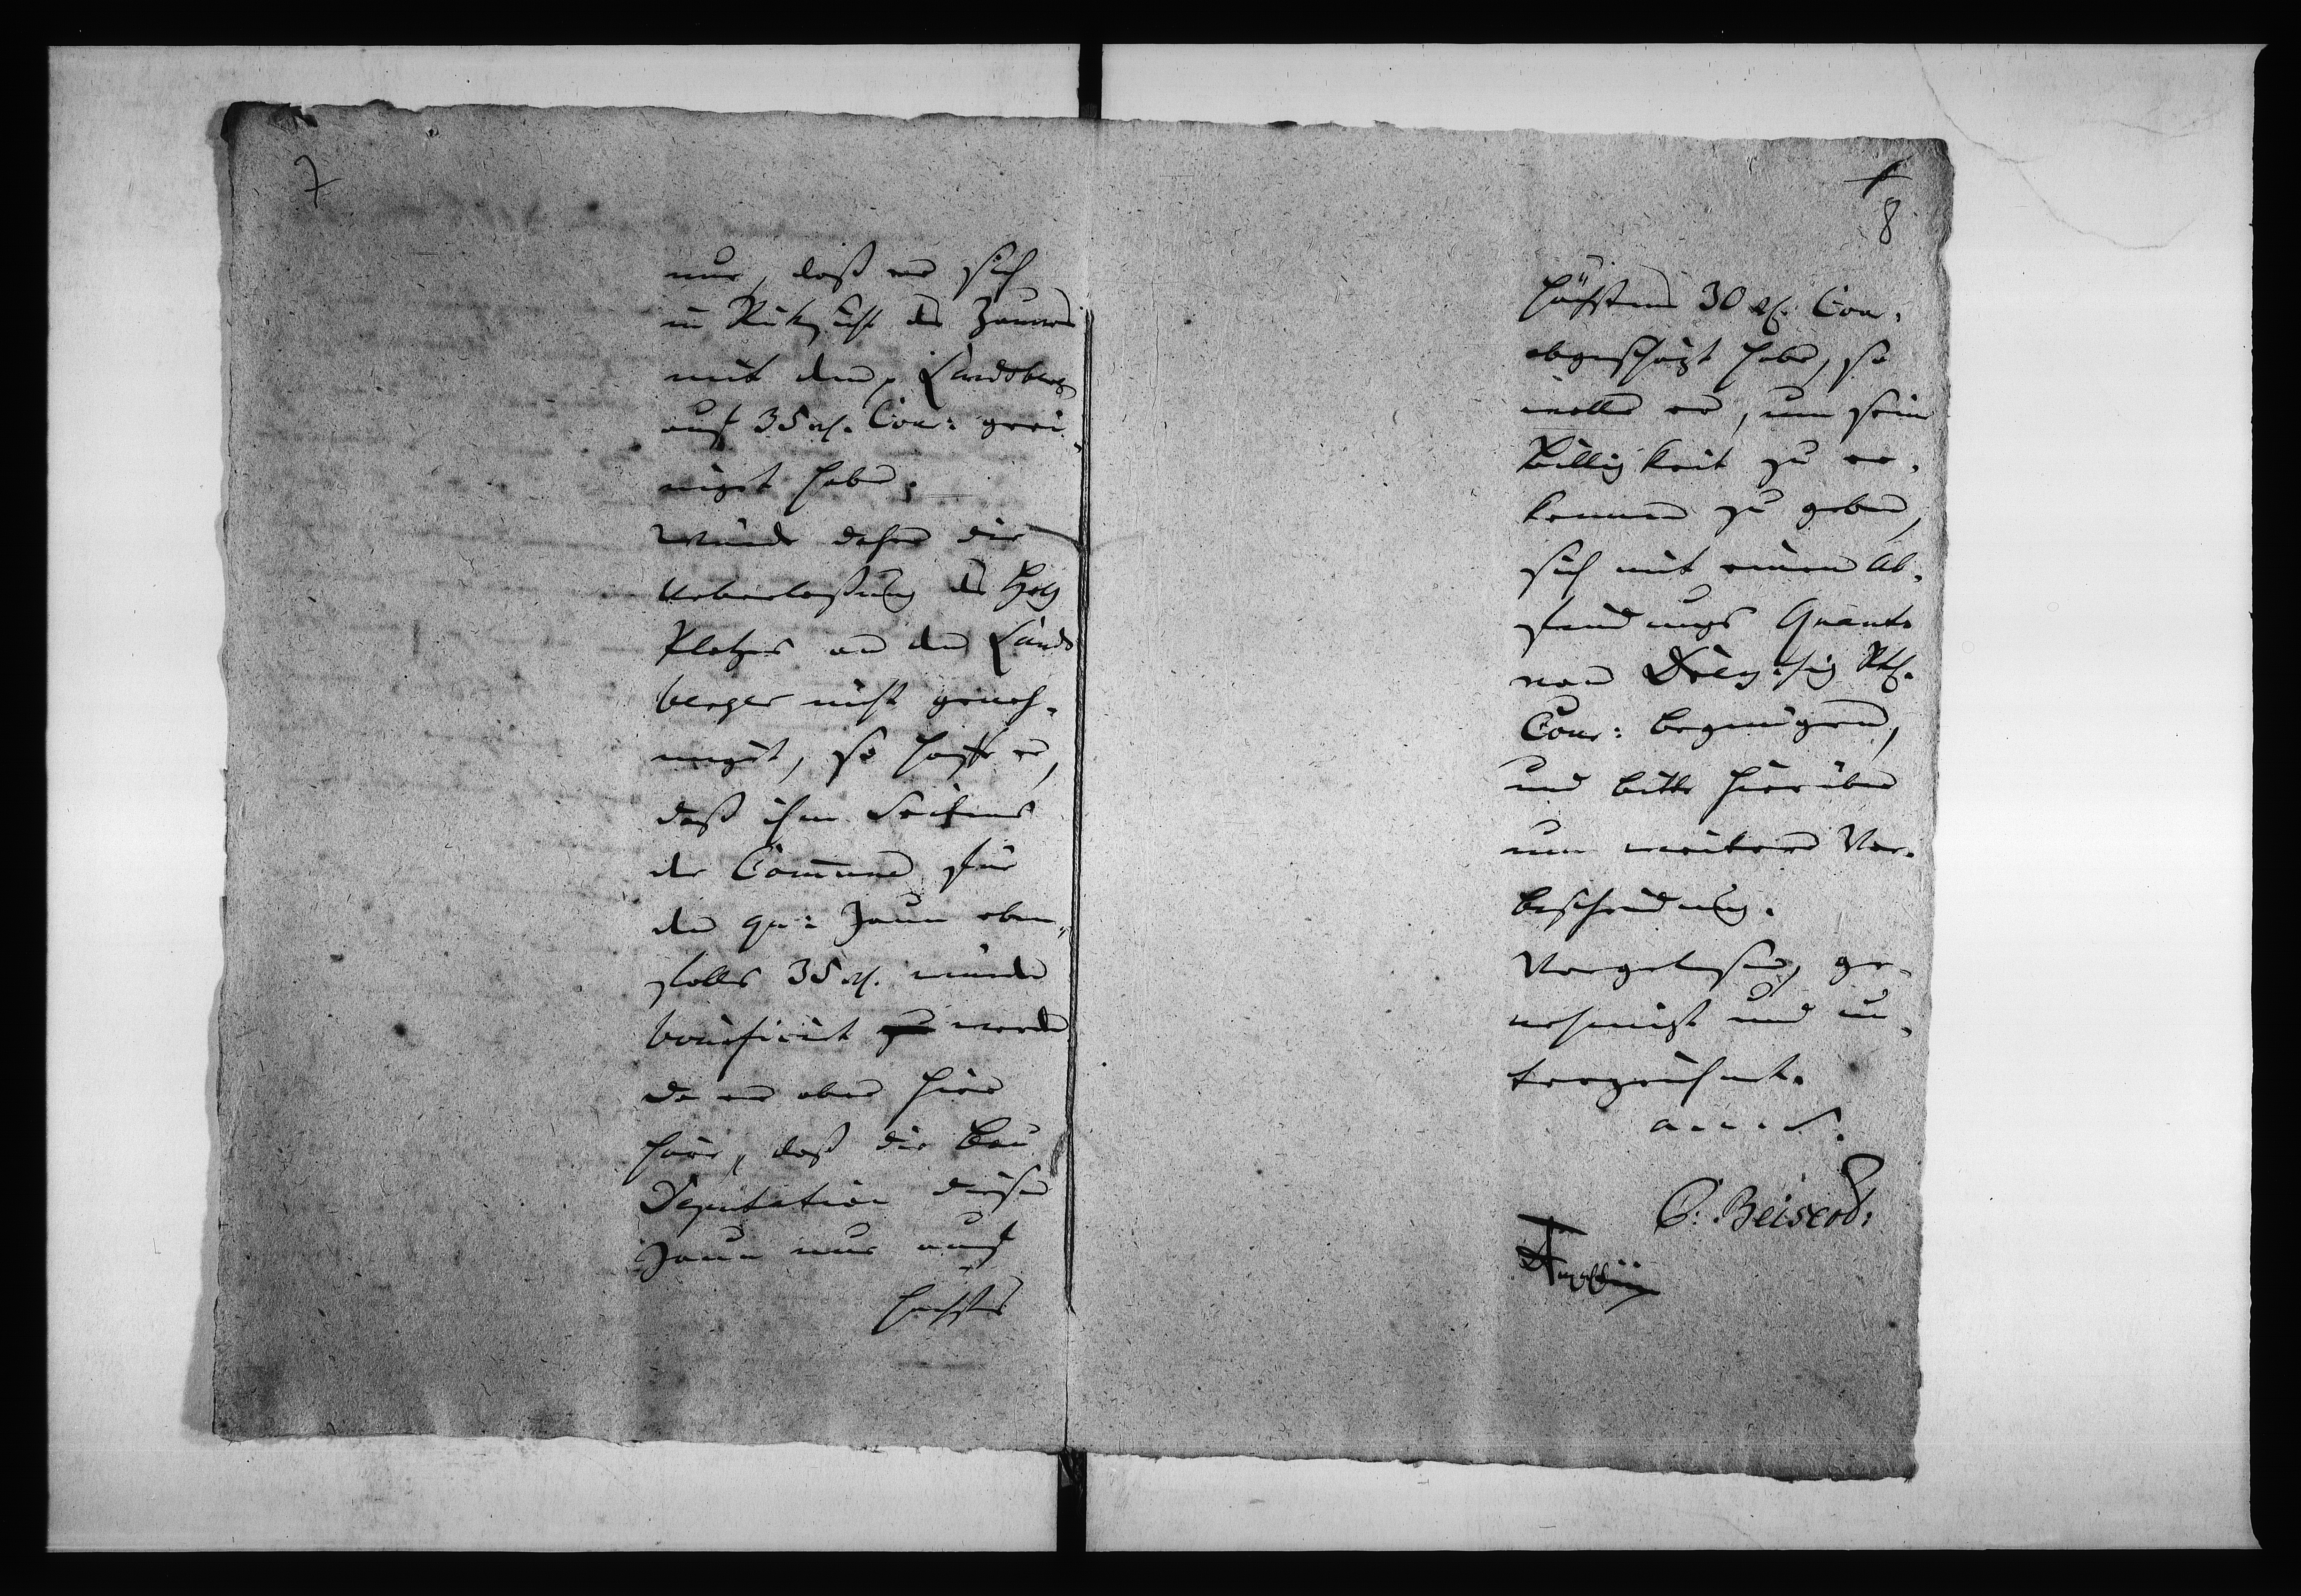 7
nur, daß er sich
in Rüksicht des Zaunes
mit dem p. Landsberg
auf 35 rh. Cou: geei-
nigt habe;
würde daher die
Ueberlaßung des Holz
Platzes an den Lands
berger nicht geneh-
migt, so hoffe er,
daß ihm Seitens
der Commune für
den qu: Zaun eben-
falls 35 rh. würde
bonificirt werden
da er aber hier
höre, daß die Bau
Deputation diesen
Zaun nur auf
höchstens
8
höchstens 30 rh. Cou.
abgeschäzt habe, so
wolle er, um seine
Billigkeit zu er-
kennen zu geben,
sich mit einem Ab-
findungs Quanto
von Dreyßig Rth.
Cour: begnügen,
und bitte hierüber
um weitere Ver-
bescheidung.
Vorgelesen, ge-
nehmigt und un-
terzeichnet.
a. u. s.
C. Beiserd.